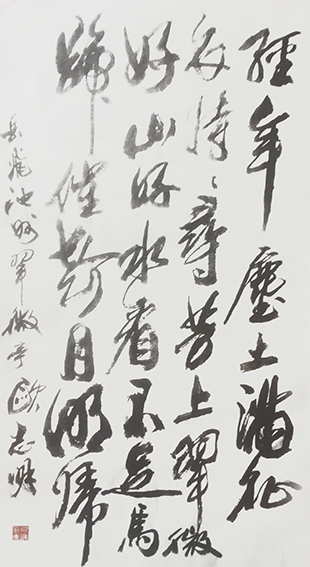 經年塵土滿征
衣特〻尋芳上翠微
好山好水看不足馬
蹄催趁月明歸
岳飛池州翠微亭歐志明